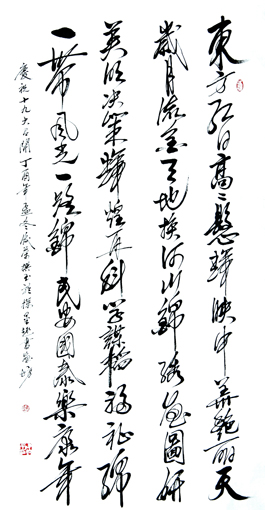 東方紅日高高懸輝映中華艷麗天
歲月流金天地換河山錦繡盡圖妍
英明決策輝煌再科學謀福祉綿
一帶風光一路錦民安國泰樂康年
慶祝十九大召開丁酉年孟冬